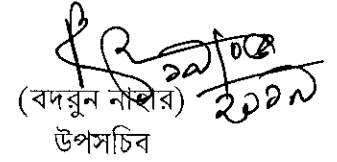 (বদরুন নাহার)
উপসচিব